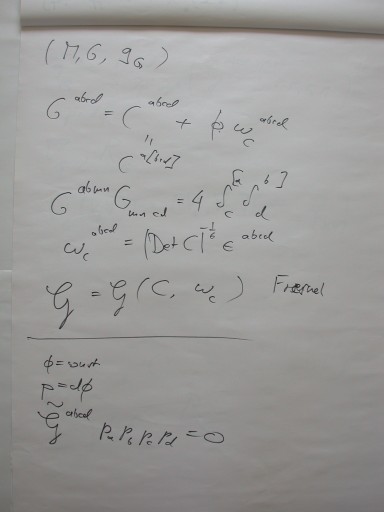 (M, G, g_G)
G^{abcd} = C^{abcd} + φ ω_C^{abcd}
"
C^{a[bcd]}
G^{abmn} G_{mncd} = 4 δ_c^{[a} δ_d^{b]}
ω_C^{abcd} = |Det C|^{-1/6} ε^{abcd}
𝒢 = 𝒢 (C, ω_C) Fresnel
φ = const
p = dφ
𝒢̃^{abcd} p_a p_b p_c p_d = 0